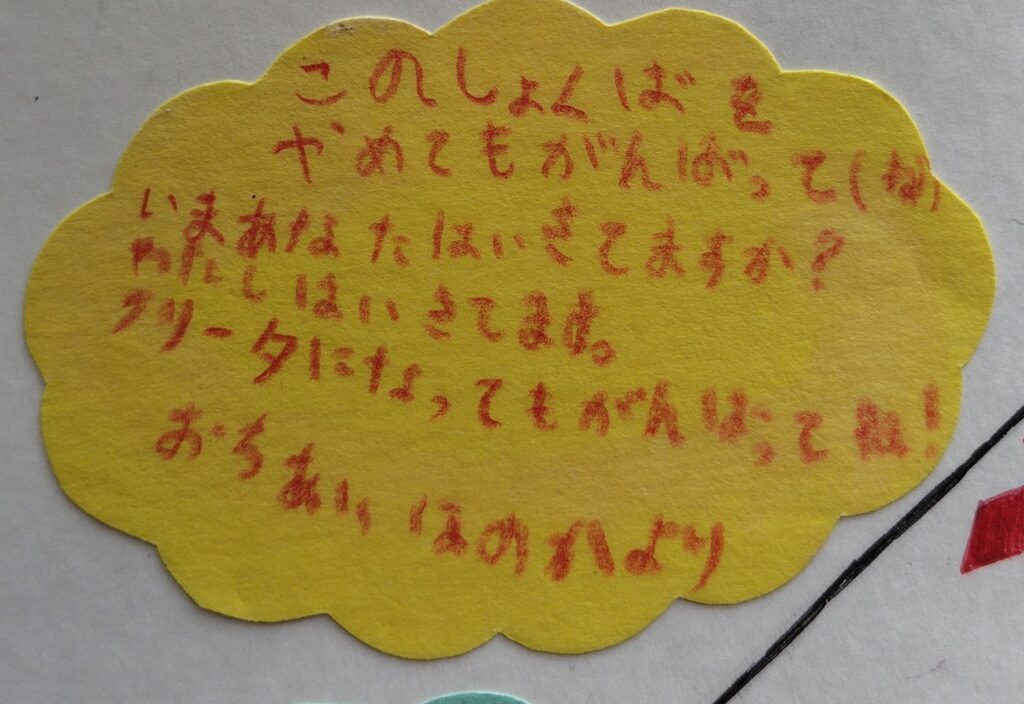 このしょくばを
やめてもがんばって(ね)
いまあなたはいきてますか?
わたしはいきてます。
フリータになってもがんばってね!
おちあいほのかより